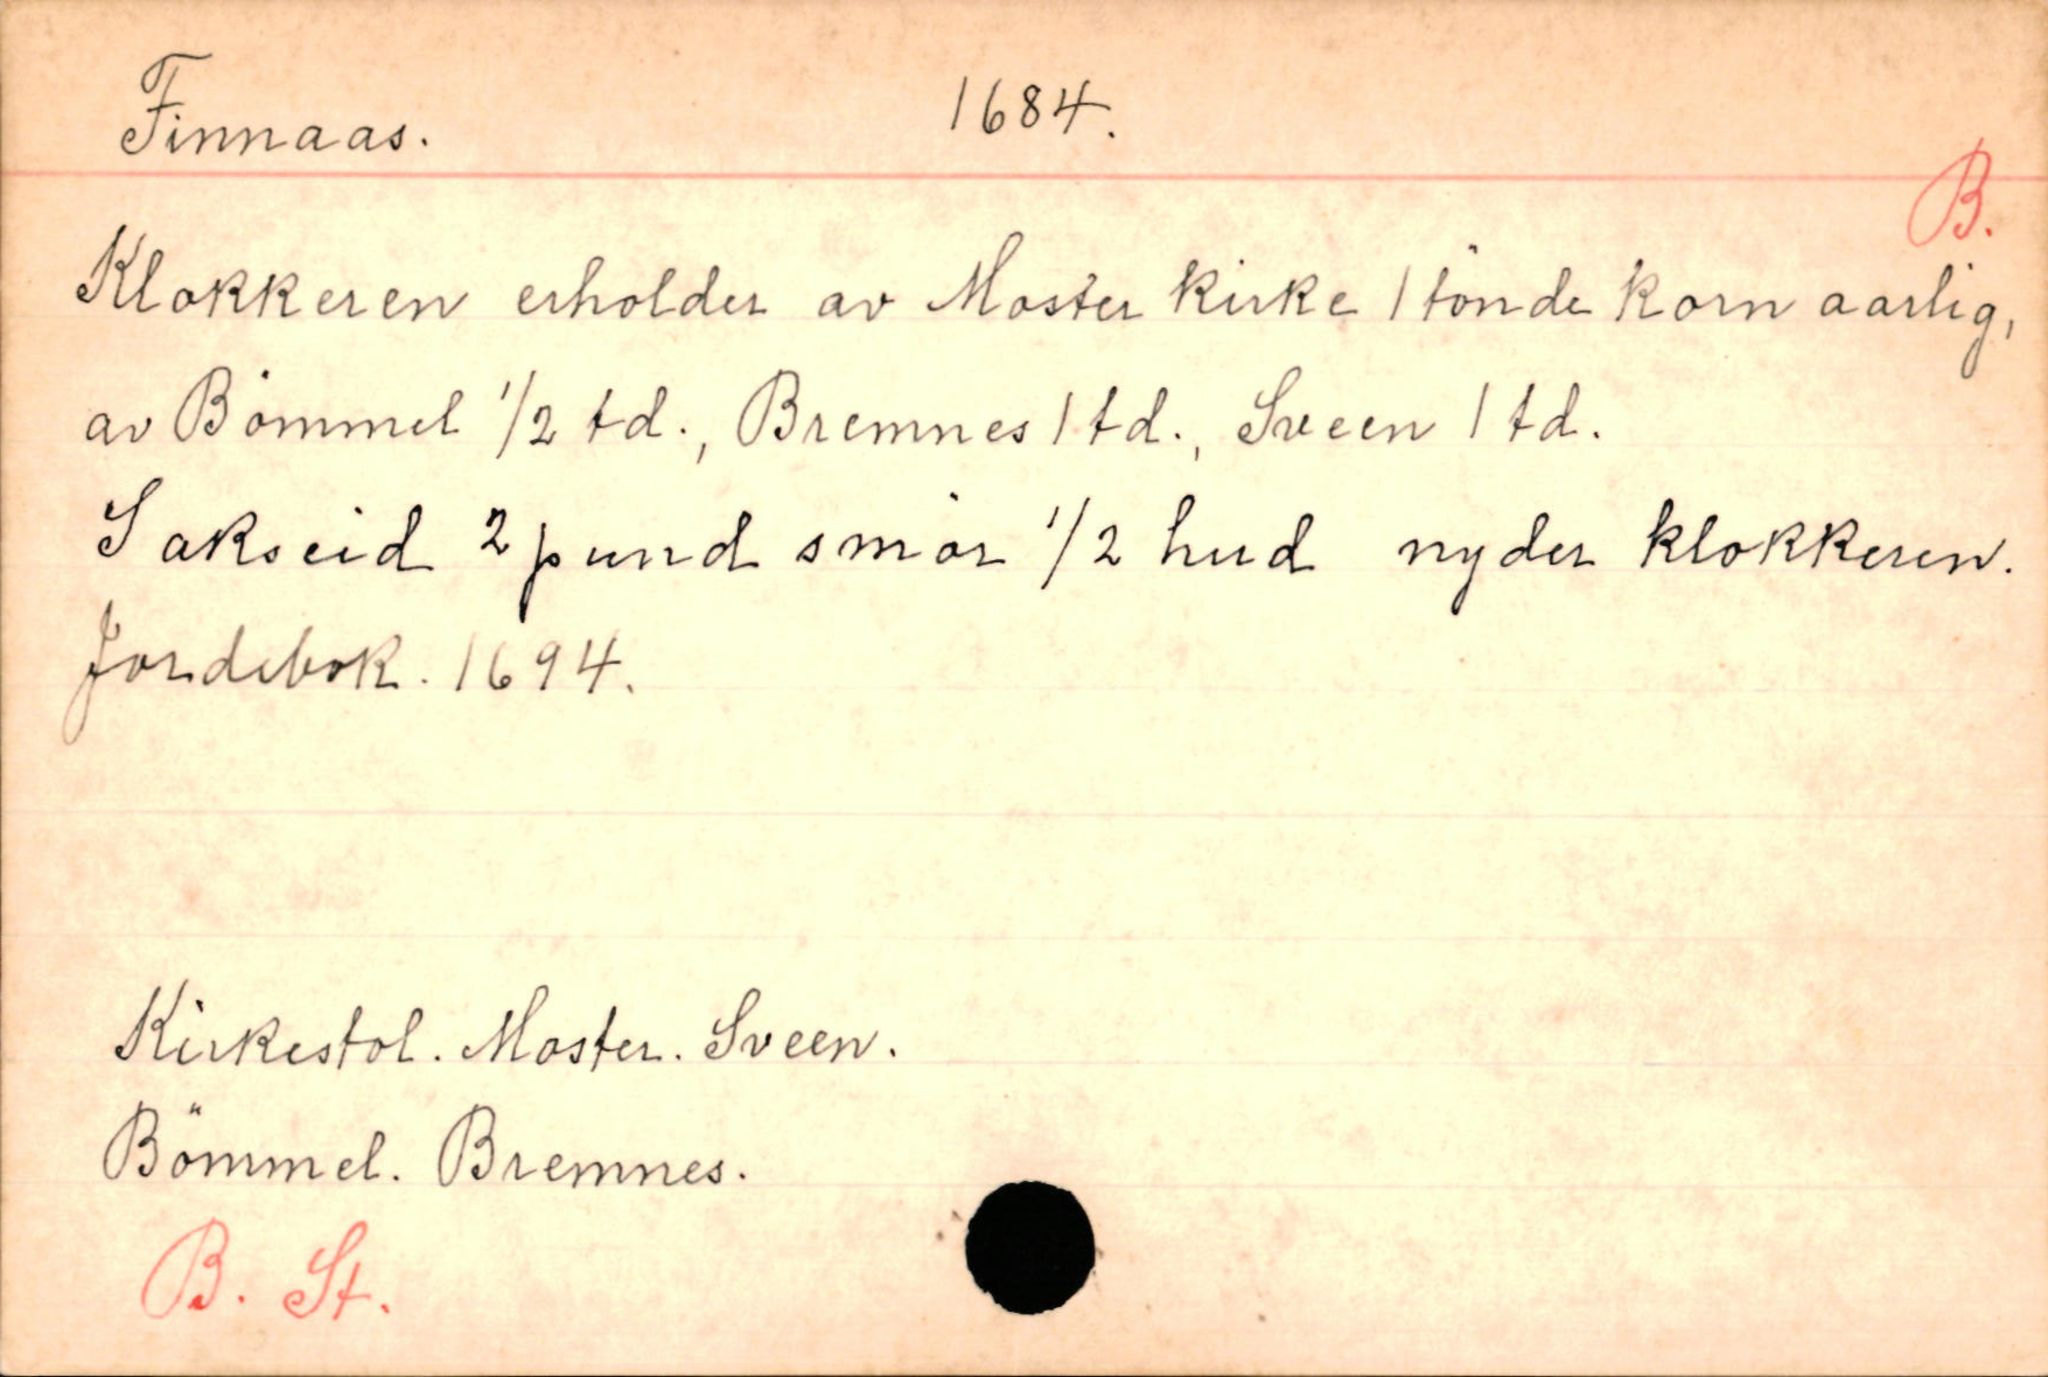 Finnaas. 1684.
B.
Klokkeren erholder av Moster kirke 1 tönde korn aarlig,
av Bömmel 1/2 td., Bremnes 1 td., Sveen 1 td.
Sakseid 2 pund smör 1/2 hud nyder klokkeren.
Jordebok. 1694.
Kirkestol. Moster. Sveen.
Bömmel. Bremnes.
B. St.